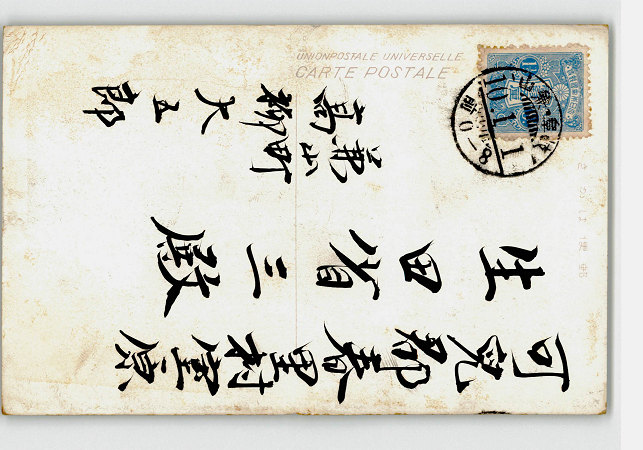 UNION POSTALE UNIVERSELLE.
CARTE POSTALE
可児郡春里村室原
生田省三殿
柳町
大五郎
10.1.1